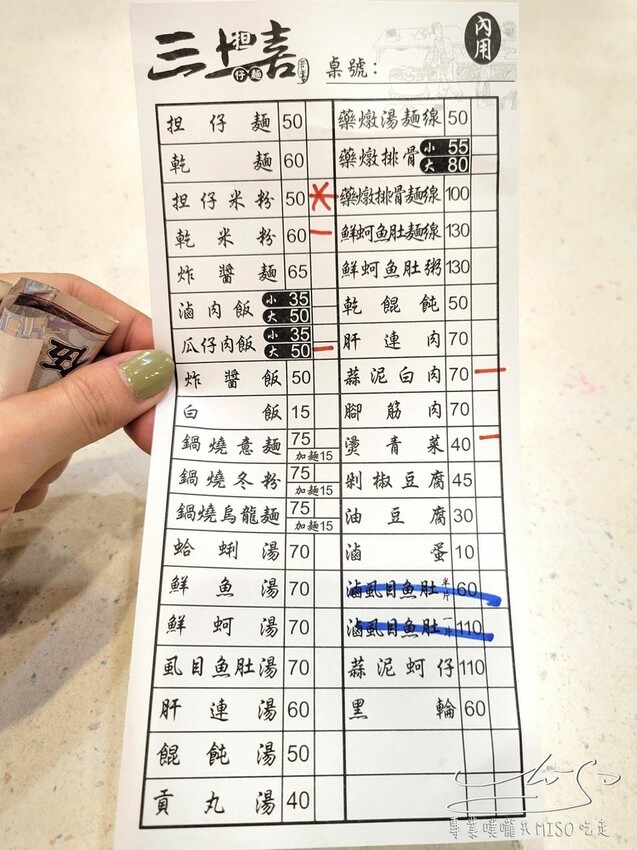 三上喜
担仔麵
桌號：
內用
担仔麵 50
乾麵 60
担仔米粉 50
乾米粉 60
炸醬麵 65
滷肉飯 小 35
大 50
瓜仔肉飯 小 35
大 50
炸醬飯 50
白飯 15
鍋燒意麵 75
加麵15
鍋燒冬粉 75
加麵15
鍋燒烏龍麵 75
加麵15
蛤蜊湯 70
鮮魚湯 70
鮮蚵湯 70
虱目魚肚湯 70
肝連湯 60
餛飩湯 50
貢丸湯 40
藥燉湯麵線 50
藥燉排骨 小 55
大 80
藥燉排骨麵線 100
鮮蚵魚肚麵線 130
鮮蚵魚肚粥 130
乾餛飩 50
肝連肉 70
蒜泥白肉 70
腳筋肉 70
燙青菜 40
剁椒豆腐 45
油豆腐 30
滷蛋 10
滷虱目魚肚 半片 60
滷虱目魚肚 一片 110
蒜泥蚵仔 110
黑輪 60
專業噗嚨共MISO吃走